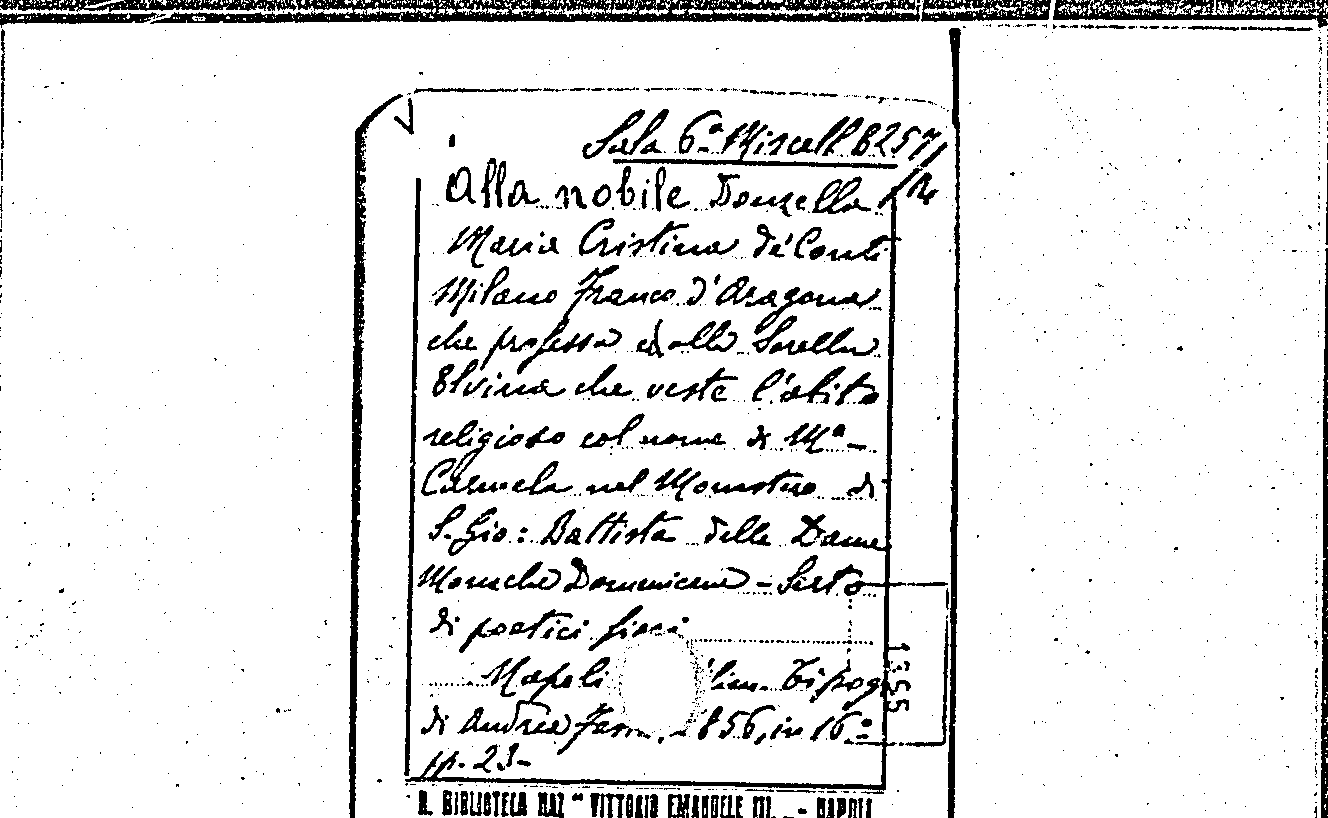 Sala 6ª Miscell. B257/
Alla nobile Donzella
Maria Cristina de' Conti
Milano Franco d'Aragona
che professa ed alla Sorella
Elvina che veste l'abito
religioso col nome di Mª
Carmela nel Monastero di
S. Gio: Battista delle Dame
Monache Domenicane - Serto
di poetici fiori
Napoli Tipog
di Andrea 856, in 16º
pp. 23-
1355
R. BIBLIOTECA NAZ " VITTORIO EMANUELE III. - NAPOLI